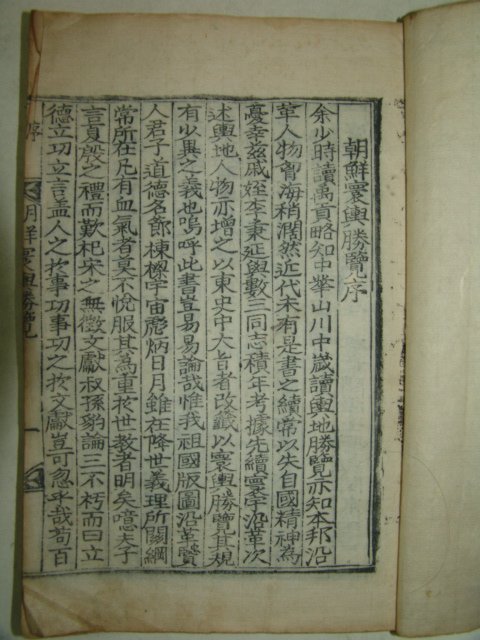 朝鮮寰輿勝覽序
余少時讀禹貢略知中華山川中歲讀輿地勝覽亦知本邦沿
革人物會海稍濶然近代未有是書之續常以失自國精神為
憂幸玆戚姪李秉延與數三同志積年考據先續寰宇沿革次
述輿地人物亦增之以東史中大旨者改籤以寰輿勝覽其規
有少異之義也嗚呼此書豈易易論哉惟我祖國版圖沿革賢
人君子道德名節棟樑宇宙彪炳日月雖在降世義理所關綱
常所在凡有血氣者莫不悅服其為重於世敎者明矣噫夫子
言夏殷之禮而歎杞宋之無徵文獻叔孫豹論三不朽而曰立
德立功立言盖人之於事功事功之於文獻豈可忽乎哉苟百
序
朝鮮寰輿勝覽
一